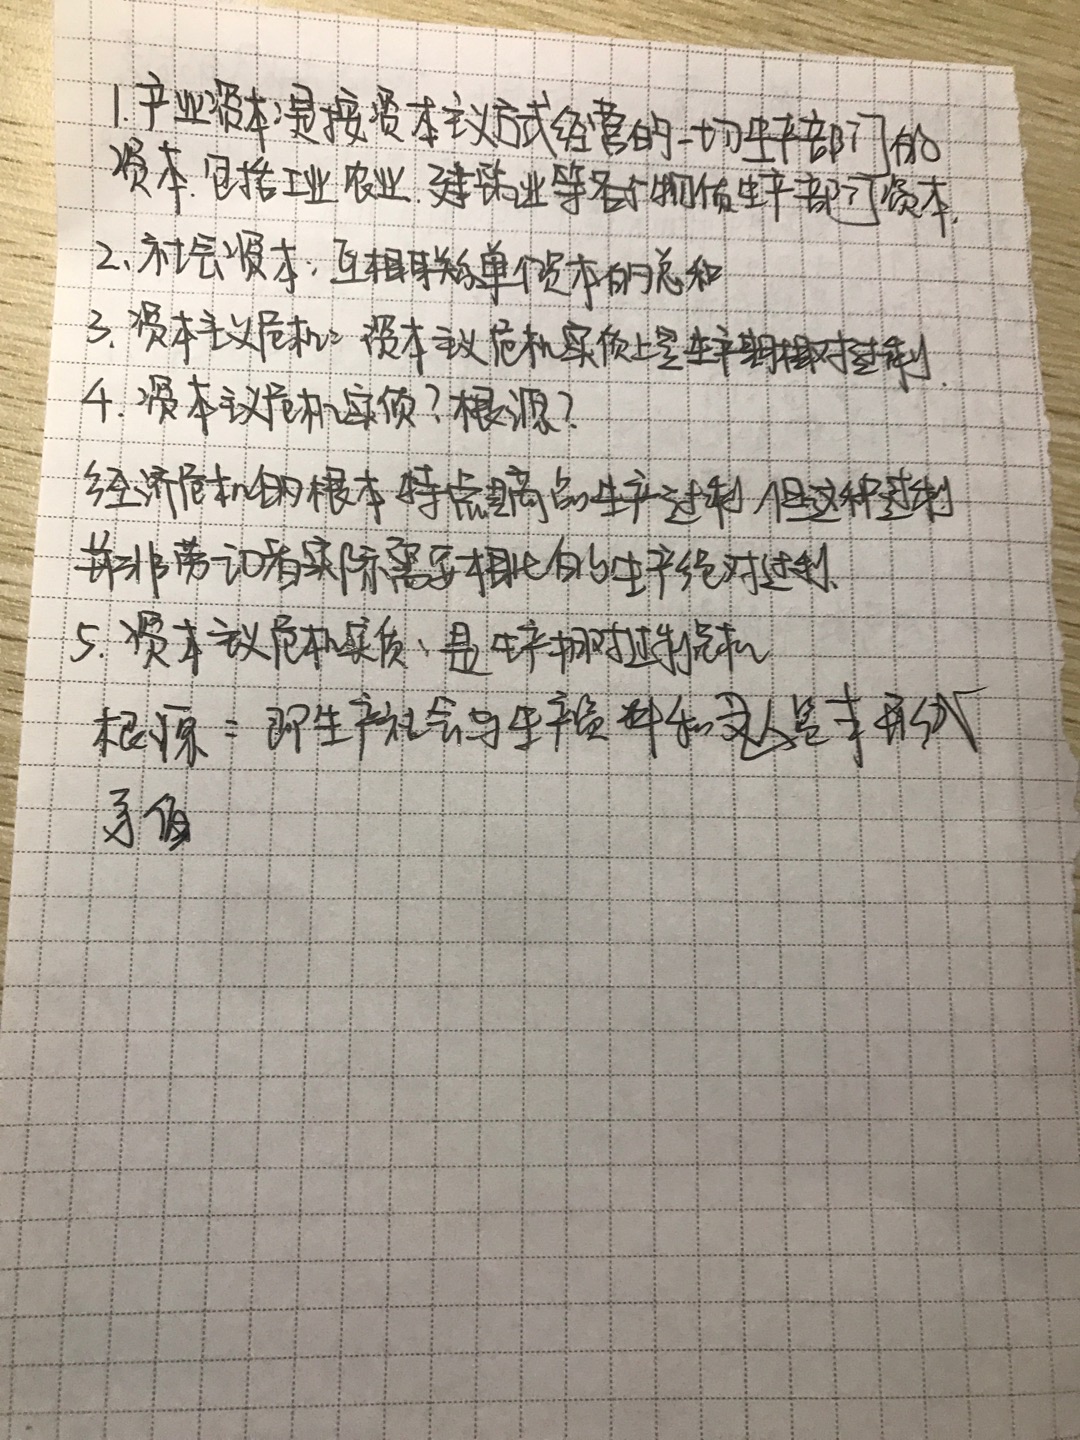 1. 产业资本:是按资本主义方式经营的一切生产部门的
资本.包括工业 农业.建筑业等各个物质生产部门资本.
2、社会资本:互相联系单个资本的总和
3、资本主义危机: 资本主义危机实质上是生产相对过剩.
4. 资本主义危机实质?根源?
经济危机的根本特点是商品生产过剩 但这种过剩
并非劳动者实际需要相比的生产绝对过剩.
5. 资本主义危机实质、是生产相对过剩危机
根源:即生产社会与生产资料私人
矛盾